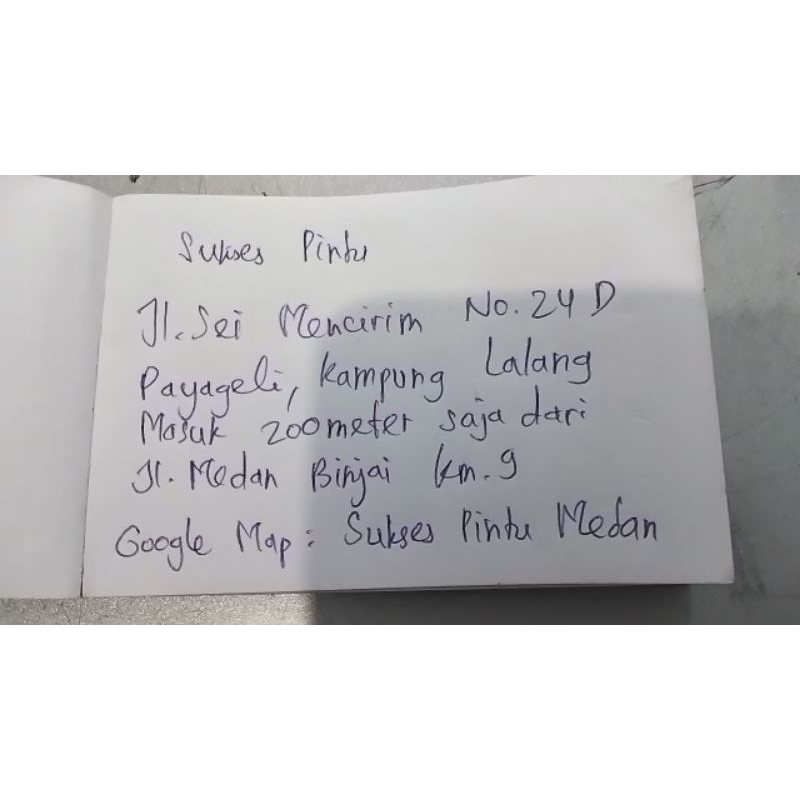 Sukses Pintu
Jl. Sei Mencirim No. 24 D
Payageli, Kampung Lalang
Masuk 200meter saja dari
Jl. Medan Binjai km. 9
Google Map : Sukses Pintu Medan